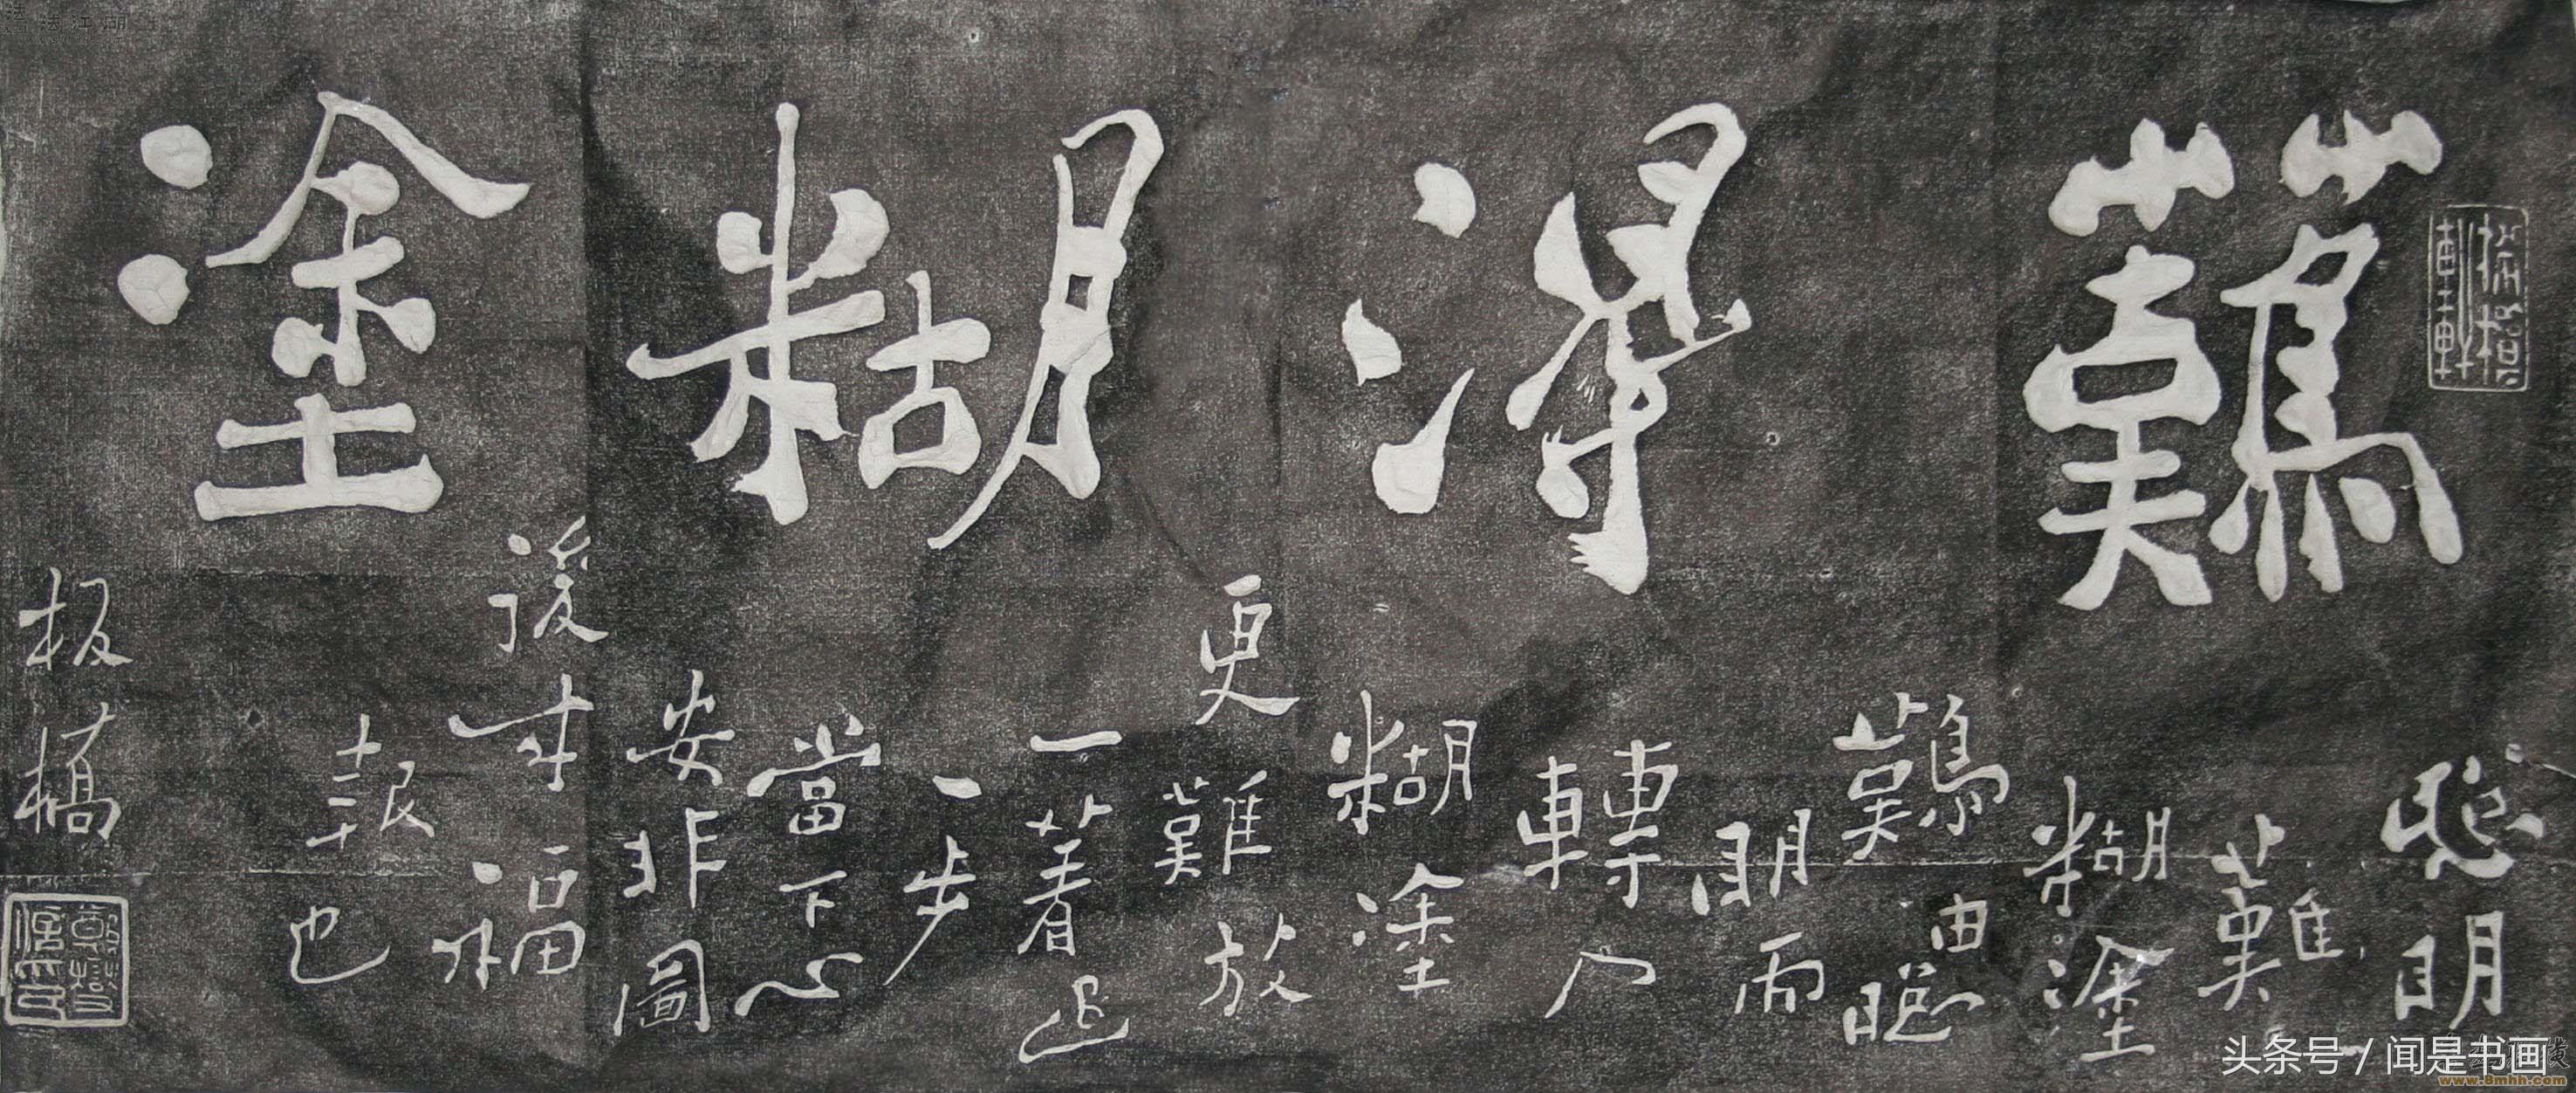 難得糊塗
聰明
難
糊塗
難由聰
明而
轉入
糊塗
更難放
一著退
一步
當下心
安非圖
後来福
報也
板橋
头条号 / 闻是书画
www.8mhh.com